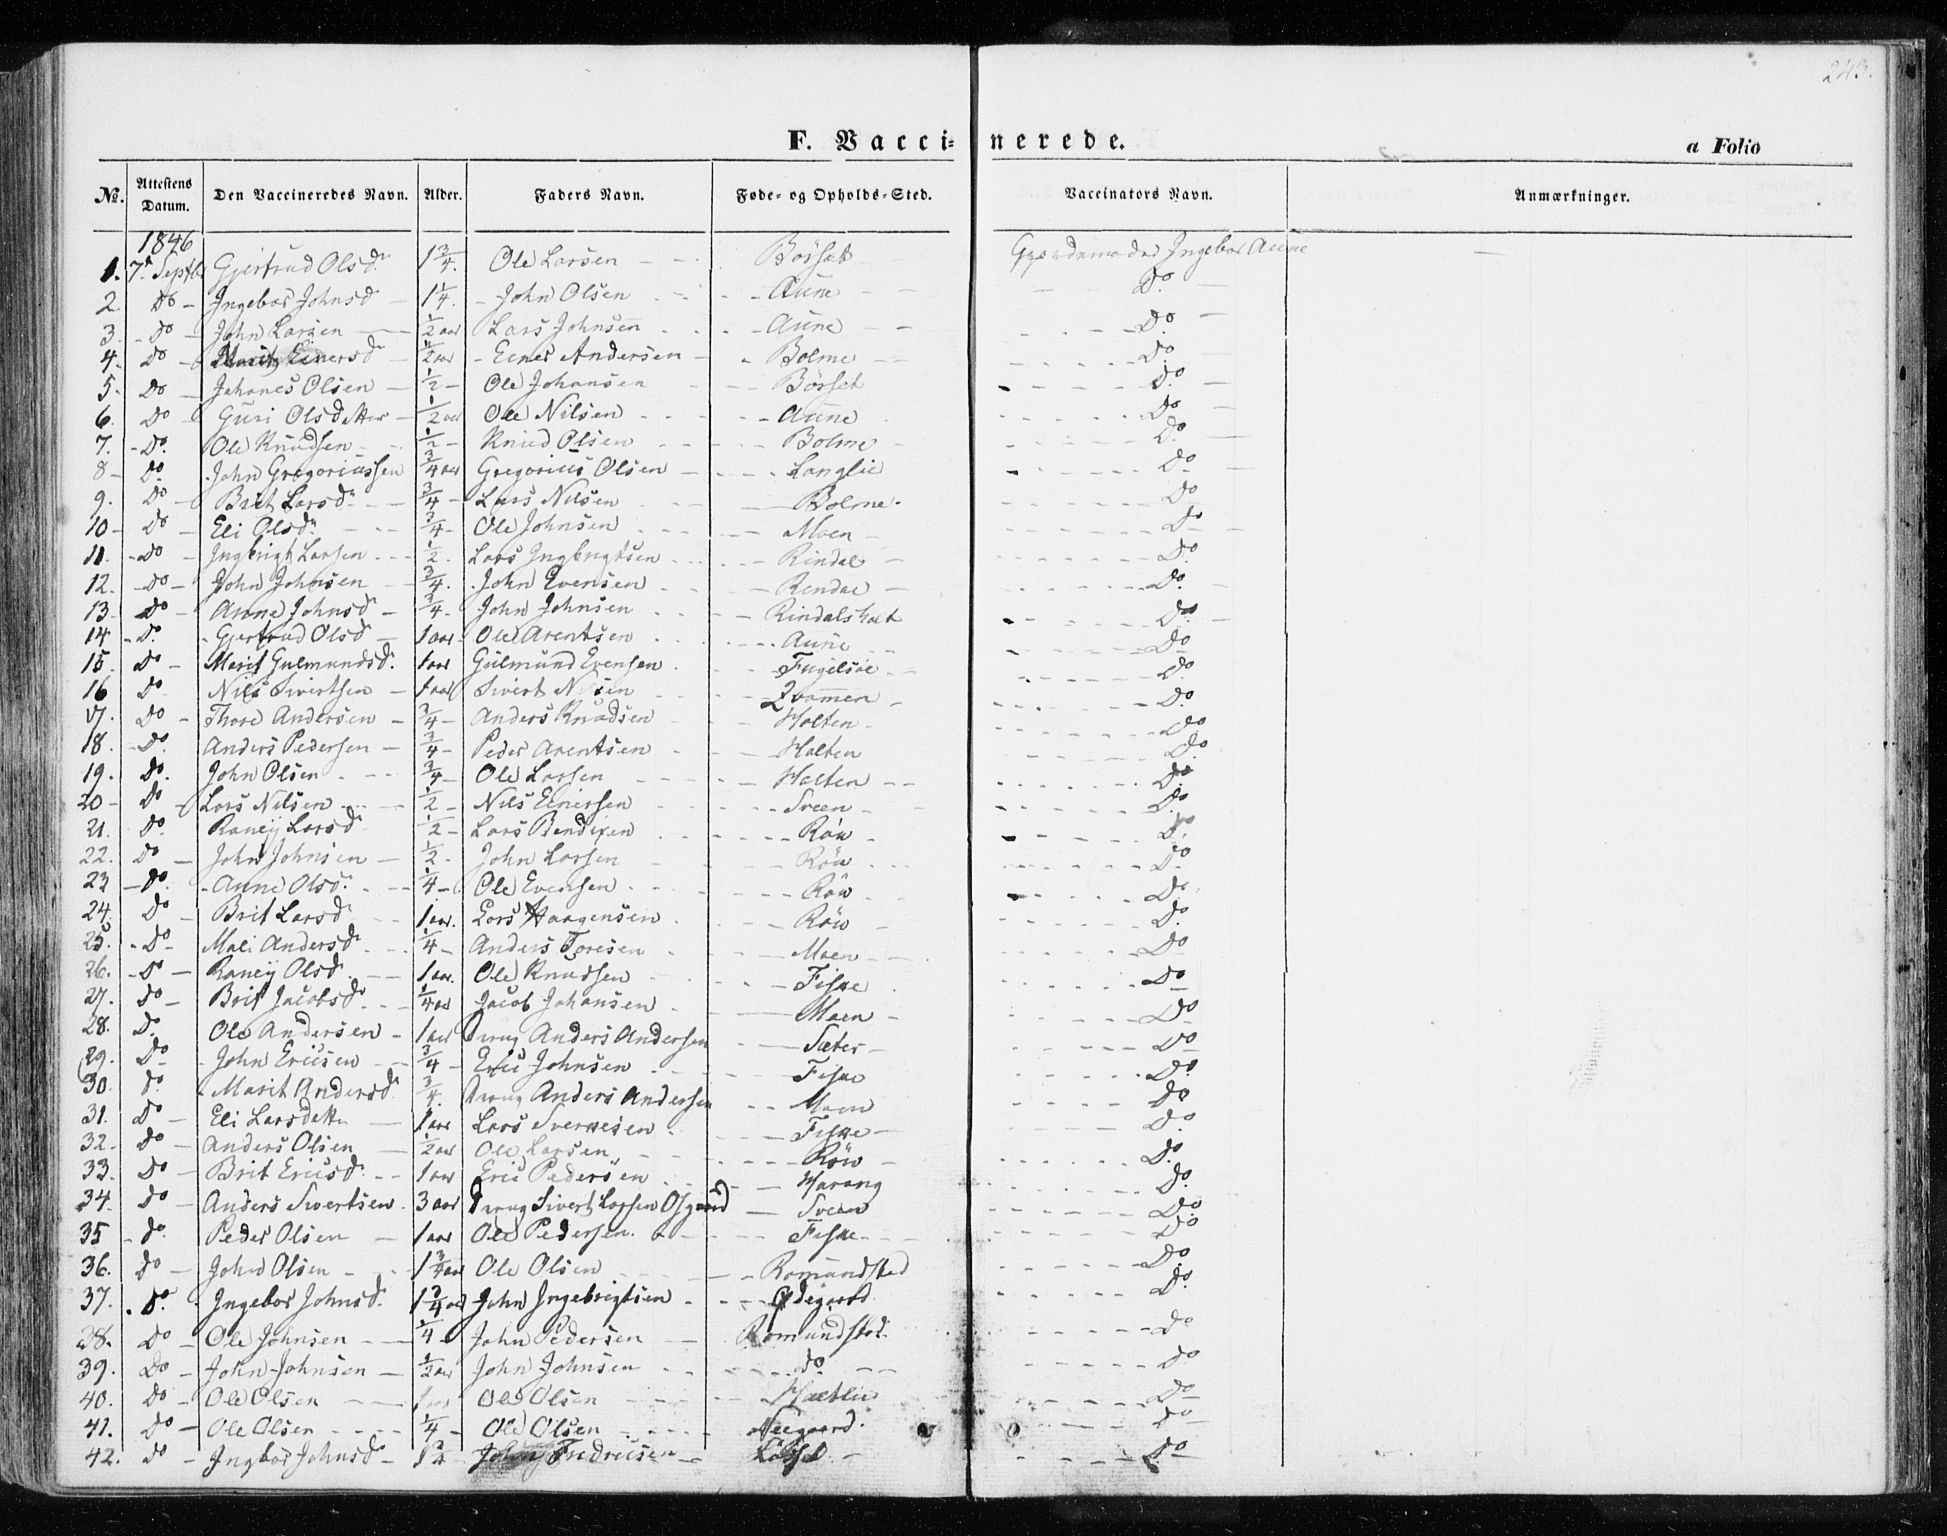 243.
F. Vaccinerede.
a Folio
No. Attestens Datum. Den Vaccineredes Navn. Alder. Faders Navn. Føde- og Opholds-Sted. Vaccinators Navn. Anmærkninger.
1846
1. 7d Septbr Gjertrud Olsdr 1 3/4. Ole Larsen Börset Gjordemoder Ingebor Aune
2. Do Ingebor Johnsd 1 1/4. John Olsen Aune Do
3. Do John Larsen 1/2 aar Lars Johnsen Aune Do
4. Do Marit Einersd 1/2 aar Einer Andersen Bolme Do
5. Do Johanes Olsen 1/2 Ole Johansen Börset Do
6. Do Guri Olsdatter 1/2 aar Ole Nilsen Aune Do
7. Do Ole Knudsen 1/2 Knud Olsen Bolme Do
8 Do John Gregoriussen 3/4 aar Gregorius Olsen Langlie Do
9. Do Brit Larsdr 3/4 Lars Nilsen Bolme. Do
10 Do Eli Olsdr 3/4 Ole Johnsen Moen Do
11. Do Ingbrigt Larsen 1/2. Lars Ingbrigtsen Rindal Do
12. Do John Johnsen 3/4. John Evensen Rendal Do
13. Do Anne Johnsd 3/4. John Johnsen Rindalsholt Do
14 Do Gjertrud Olsd 1 aar Ole Arentsen Aune Do
15. Do Marit Gulmundsd. 1 aar Gulmund Evensen Fugelsöe Do
16 Do Nils Sivertsen 1 aar Sivert Nilsen Qvammen Do
17. Do Thore Andersen 3/4 Anders Knudsen Holten Do
18. Do Anders Pedersen 3/4 Peder Arentsen Holten Do
19. Do John Olsen 3/4 Ole Larsen Holten Do
20 Do Lars Nilsen 1/2 Nils Einersen Sveen Do
21. Do Raney Larsd 1/2 Lars Bendixen Röw Do
22. Do John Johnsen 1/2 John Larsen Röw Do
23 Do Anne Olsd. 1/4 Ole Evensen Röw Do
24. Do Brit Larsd. 1 aar. Lars Haagensen Röw Do
25. Do Mali Andersd 1/4 Anders Toresen Moen Do
26. Do Raney Olsd 1 aar. Ole Knudsen Fiske Do
27. Do Brit Jacobsd 1/4 aar Jacob Johansen Moen Do
28. Do Ole Andersen 1 aar Anders Andersen Sæter Do
29. Do John Ericsen 3/4 Eric Johnsen Fiske Do
30. Do Marit Andersd 3/4. Anders Andersen Moen Do
31. Do Eli Larsdatter 1 aar Lars Iversen Fiske Do
32. Do Anders Olsen 1/2 aar Ole Larsen Röw Do
33. Do Brit Ericsd. 1 aar Eric Pedersen Harang Do
34. Do Anders Sivertsen 3 aar Sivert Larsen Sveen Do
35 Do Peder Olsen 1 aar Ole Pedersen. Fiske Do
36. Do John Olsen 1 3/4 aar Ole Olsen Romundsted Do
37. Do Ingebor Johnsd. 1 3/4 aar John Ingebrigtsen Ödegaard Do
28. Do Ole Johnsen 1/4 John Pedersen Romundstad. Do
39. Do John Johnsen 1/2 aar John Johnsen do Do
40. Do Ole Olsen 1 aar Ole Olsen Do
41. Do Ole Olsen 1/4 Ole Olsen Neegaard. Do
42. Do Ingbor Johnsd John Do